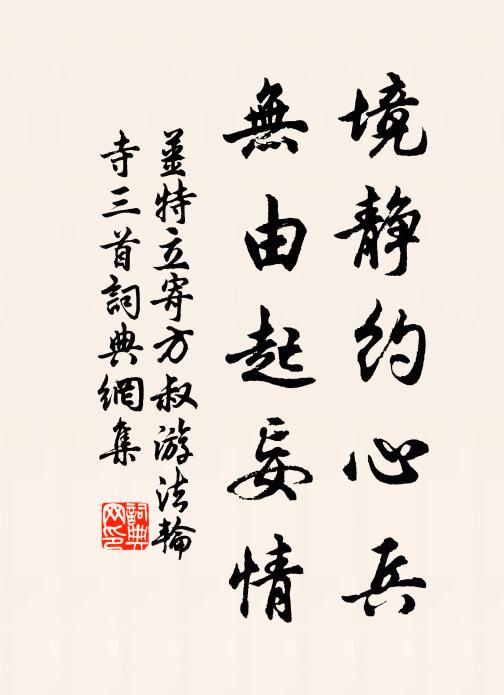 境静約心兵
無由起妄情
姜特立寄方叔游法輪
寺三首詞典網集
詞典
网印